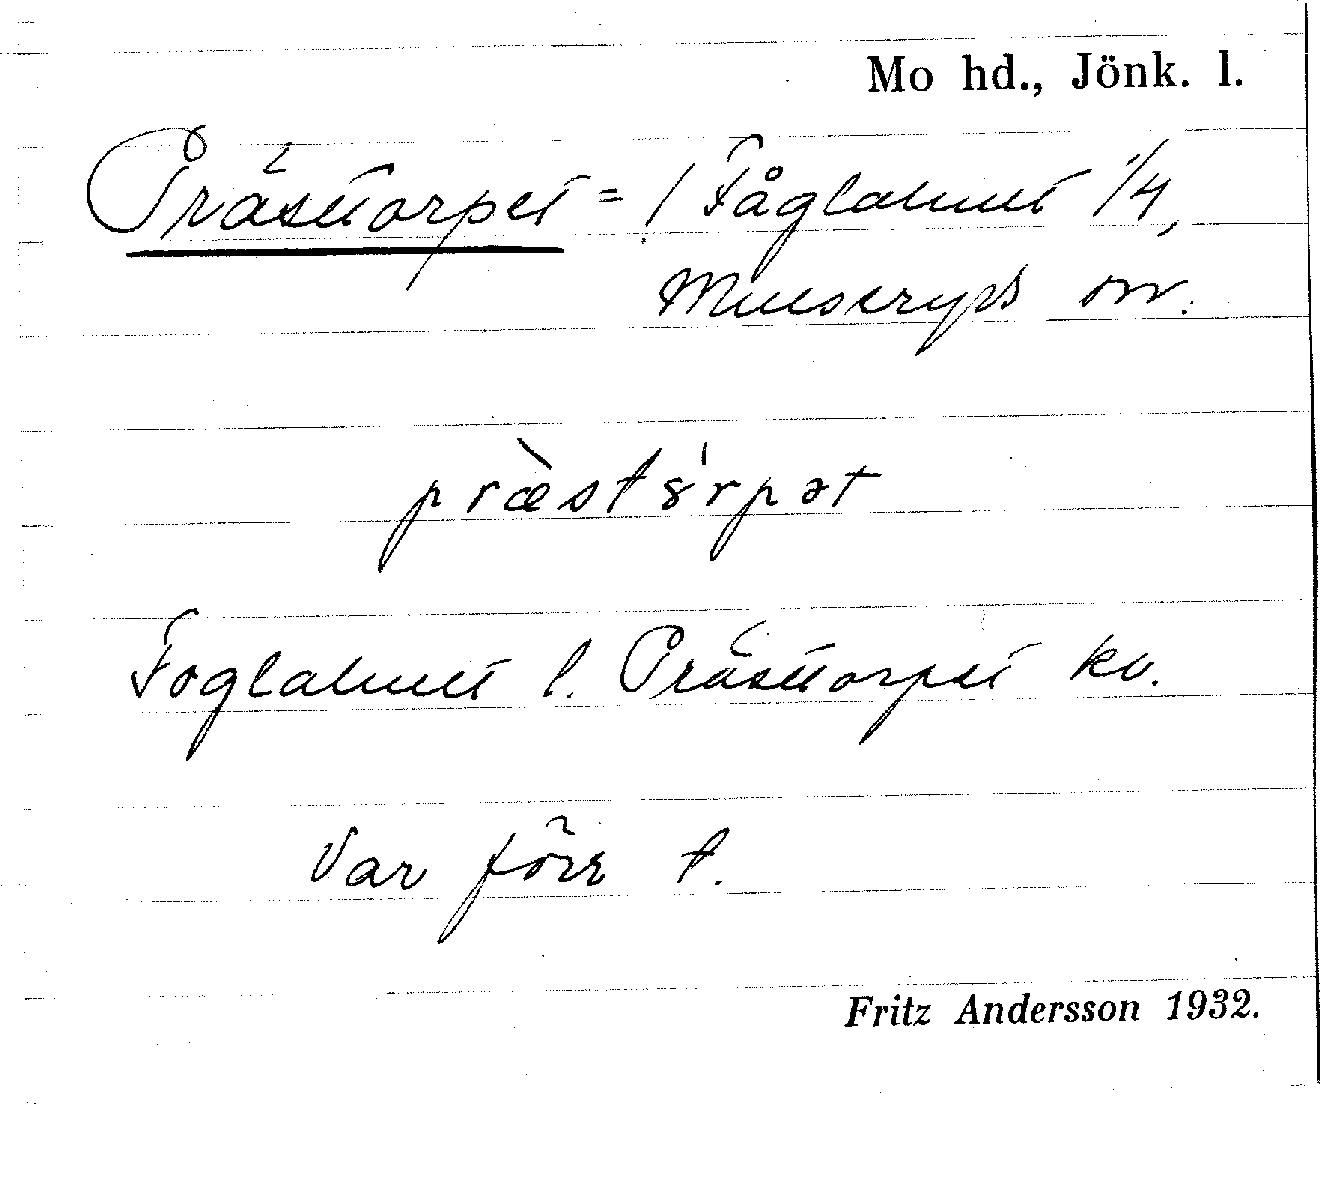 Mo hd., Jönk. l.
Prästtorpet = / Fåglahult 1/4,
Munseryds sn.
præ̀sts̍rpət
Foglahult l. Prästtorpet kv.
Var förr t.
Fritz Andersson 1932.